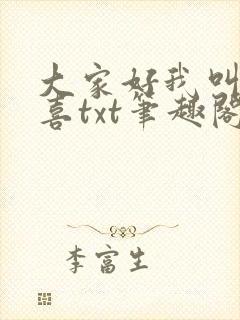 大家好我叫
喜txt笔趣阁
李富生